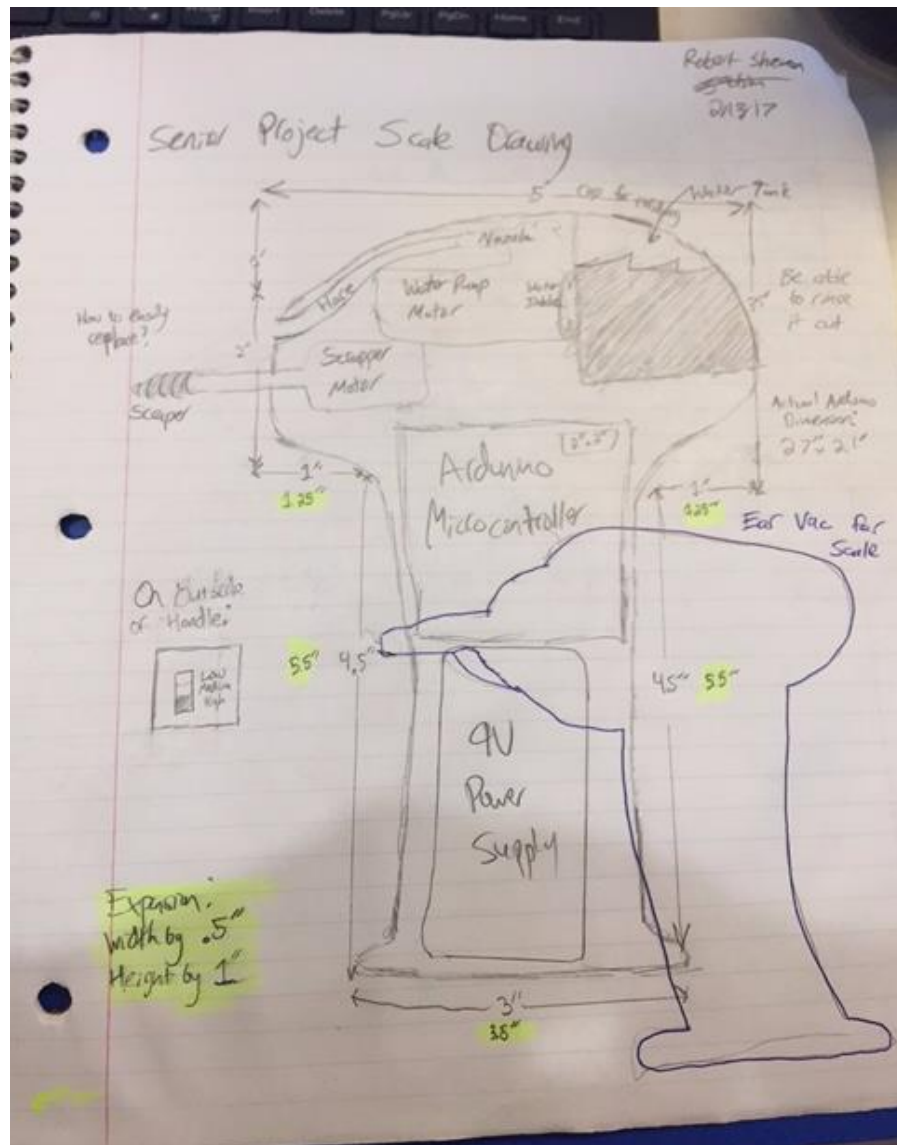 Robert Sherman
2/13/17
Senior Project Scale Drawing
5"
Cap for
Water Tank
Nozzle
Hose
Water Pump
Motor
Water
Be able
to rinse
it out
How to easily
replace?
2"
Scrapper
Motor
Scraper
Actual Arduino
Dimension:
2.7" x 2.1"
Arduino
Microcontroller
1"
1.25"
1"
1.25"
Ear Vac for
Scale
On Outside
of Handle:
Low
Medium
High
5.5" 4.5"
4.5" 5.5"
9V
Power
Supply
Expansion:
Width by .5"
Height by 1"
3"
3.5"